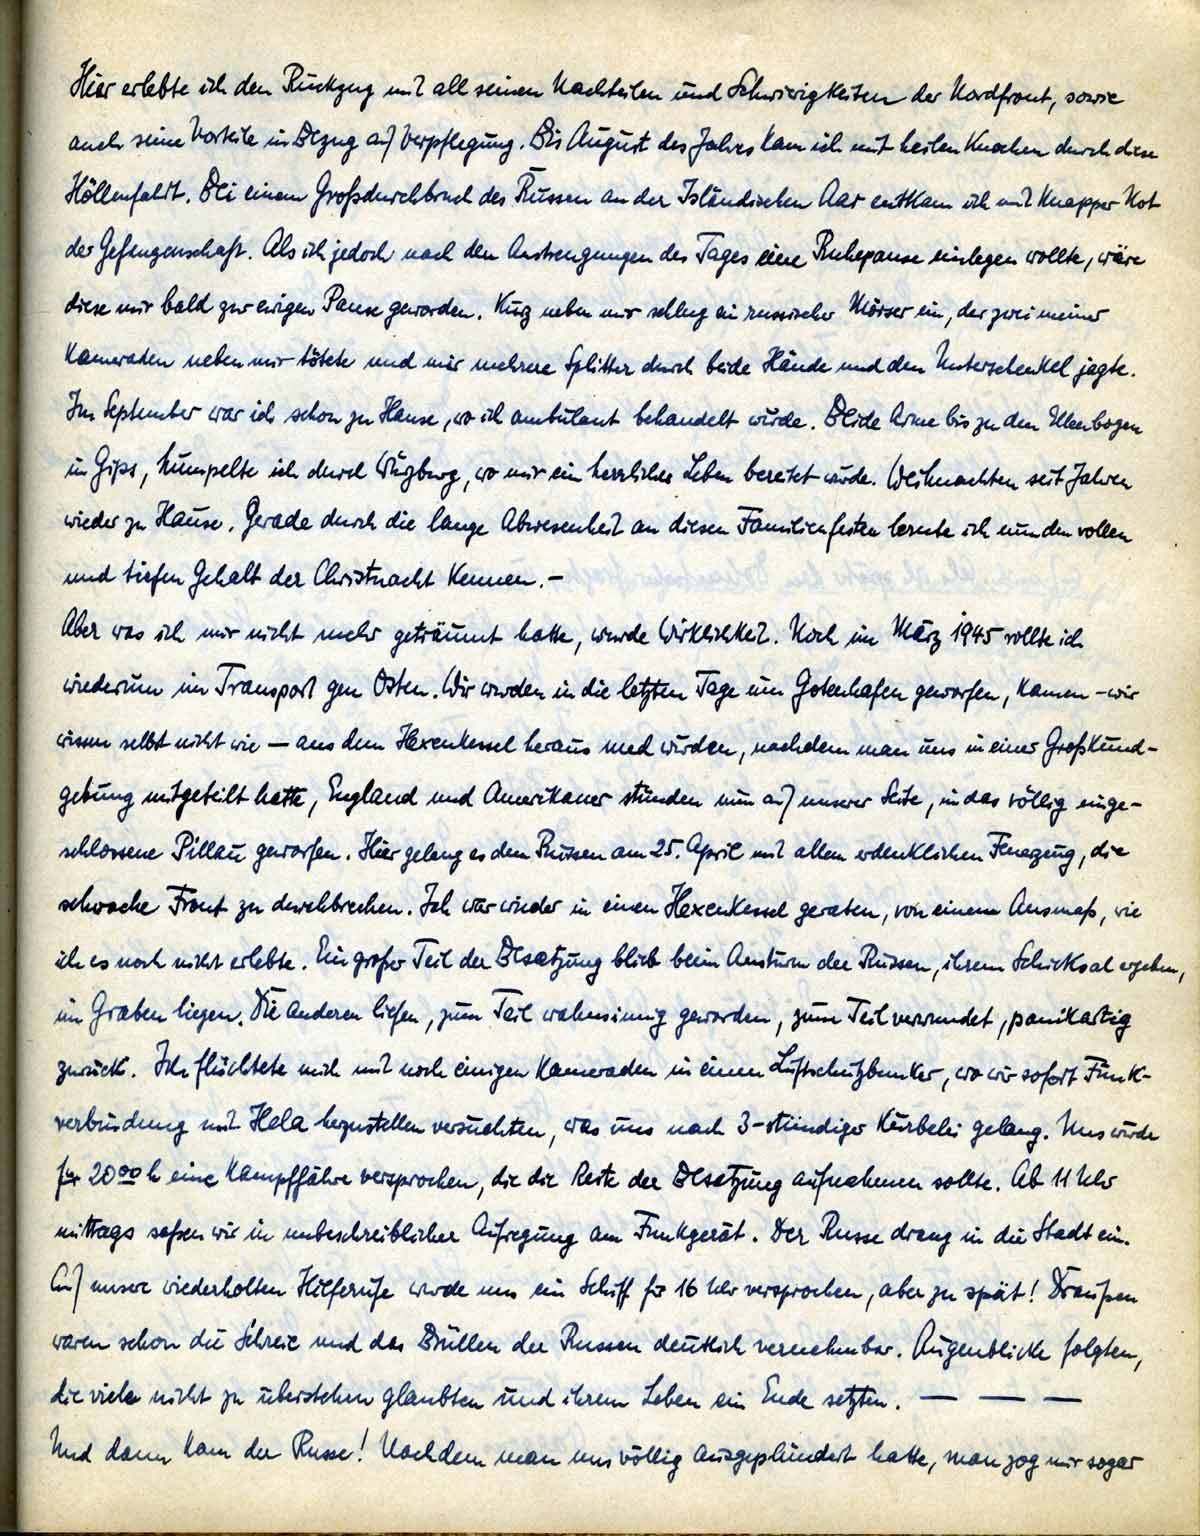 Hier erlebte ich den Rückzug mit all seinen Nachteilen und Schwierigkeiten der Nordfront, sowie
auch seine Vorteile in Bezug auf Verpflegung. Bis August des Jahres kam ich mit heilen Knochen durch diese
Höllenfahrt. Bei einem Großdurchbruch des Russen an der Isländischen Aar entkam ich mit knapper Not
der Gefangenschaft. Als ich jedoch nach den Anstrengungen des Tages eine Ruhepause einlegen wollte, wäre
diese mir bald zur ewigen Pause geworden. Kurz neben mir schlug ein russischer Mörser ein, der zwei meiner
Kameraden neben mir tötete und mir mehrere Splitter durch beide Hände und den Unterschenkel jagte.
Im September war ich schon zu Hause, wo ich ambulant behandelt wurde. Beide Arme bis zu den Ellenbogen
in Gips, humpelte ich durch Würzburg, wo mir ein herrliches Leben bereitet wurde. Weihnachten seit Jahren
wieder zu Hause. Gerade durch die lange Abwesenheit an diesen Familienfesten lernte ich nun den vollen
und tiefen Gehalt der Christnacht kennen. –
Aber was ich mir nicht mehr geträumt hatte, wurde Wirklichkeit. Noch im März 1945 rollte ich
wiederum im Transport gen Osten. Wir wurden in die letzten Tage um Gotenhafen geworfen, kamen – wir
wissen selbst nicht wie – aus dem Hexenkessel heraus und wurden, nachdem man uns in einer Großkund-
gebung mitgeteilt hatte, England und Amerikaner stünden nun auf unserer Seite, in das völlig einge-
schlossene Pillau geworfen. Hier gelang es dem Russen am 25. April mit allem erdenklichen Feuerzeug, die
schwache Front zu durchbrechen. Ich war wieder in einen Hexenkessel geraten, von einem Ausmaß, wie
ich es noch nicht erlebte. Ein großer Teil der Besatzung blieb beim Ansturm der Russen, ihrem Schicksal ergeben,
im Graben liegen. Die Anderen liefen, zum Teil wahnsinnig geworden, zum Teil verwundet, panikartig
zurück. Ich flüchtete mich mit noch einigen Kameraden in einen Luftschutzbunker, wo wir sofort Funk-
verbindung mit Hela herzustellen versuchten, was uns nach 3-stündiger Kurbelei gelang. Uns wurde
für 20⁰⁰ h eine Kampffähre versprochen, die die Reste der Besatzung aufnehmen sollte. Ab 11 Uhr
mittags saßen wir in unbeschreiblicher Aufregung am Funkgerät. Der Russe drang in die Stadt ein.
Auf unsere wiederholten Hilferufe wurde uns ein Schiff für 16 Uhr versprochen, aber zu spät! Draußen
waren schon die Schreie und das Brüllen der Russen deutlich vernehmbar. Augenblicke folgten,
die viele nicht zu überstehen glaubten und ihrem Leben ein Ende setzten. — — —
Und dann kam der Russe! Nachdem man uns völlig ausgeplündert hatte, man zog mir sogar